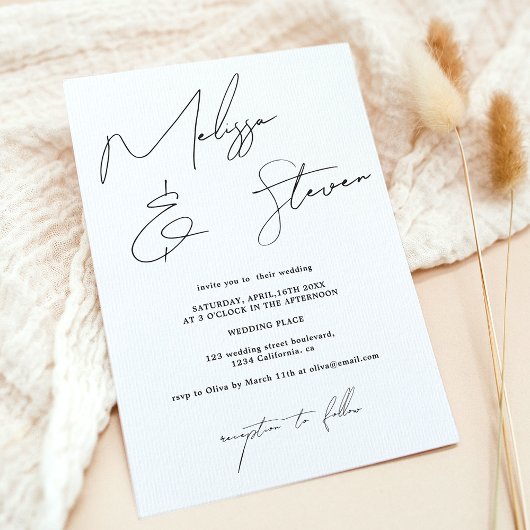 Melissa
& Steven
invite you to their wedding
SATURDAY, APRIL,16TH 20XX
AT 3 O'CLOCK IN THE AFTERNOON
WEDDING PLACE
123 wedding street boulevard,
1234 California. ca
rsvp to Oliva by March 11th at oliva@email.com
reception to follow